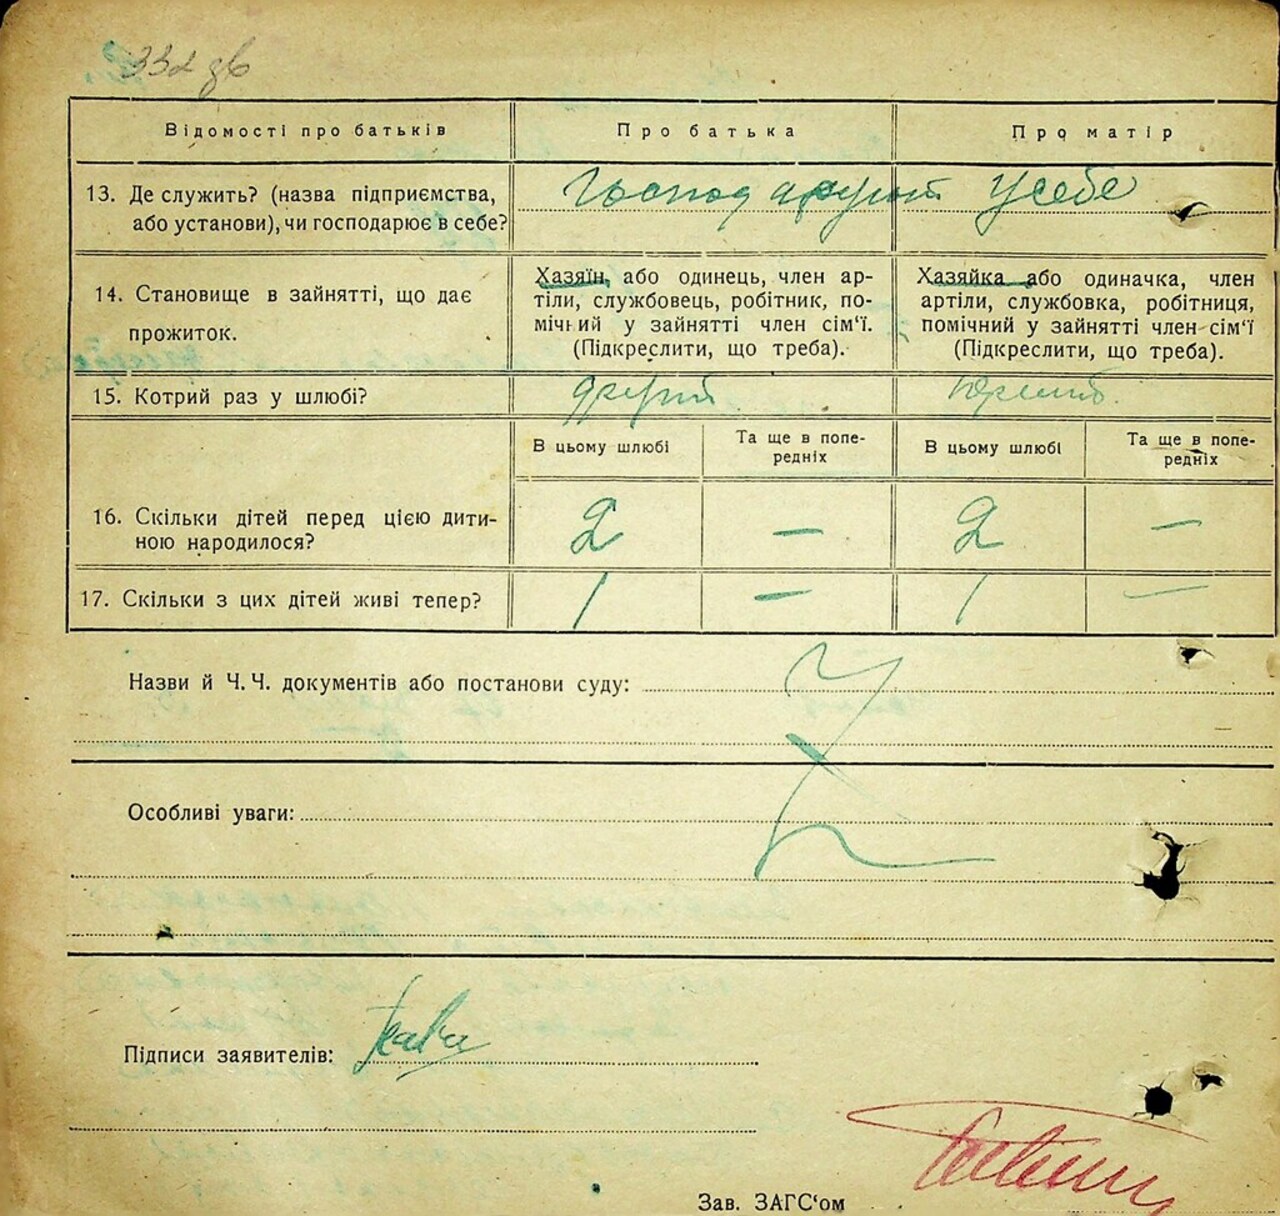 332 зв
Відомості про батьків
Про батька
Про матір
13. Де служить? (назва підприємства,
або установи), чи господарює в себе?
Господарують у себе
14. Становище в зайнятті, що дає
прожиток.
Хазяїн, або одинець, член ар-
тілі, службовець, робітник, по-
мічний у зайнятті член сім‘ї.
(Підкреслити, що треба).
Хазяйка або одиначка, член
артілі, службовка, робітниця,
помічний у зайнятті член сім‘ї
(Підкреслити, що треба).
15. Котрий раз у шлюбі?
другий
В цьому шлюбі
Та ще в попе-
редніх
В цьому шлюбі
Та ще в попе-
редніх
16. Скільки дітей перед цією дити-
ною народилося?
2 — 2 —
17. Скільки з цих дітей живі тепер?
1 — 1 —
Назви й Ч. Ч. документів або постанови суду:
Особливі уваги:
Підписи заявителів:
Зав. ЗАГС‘ом